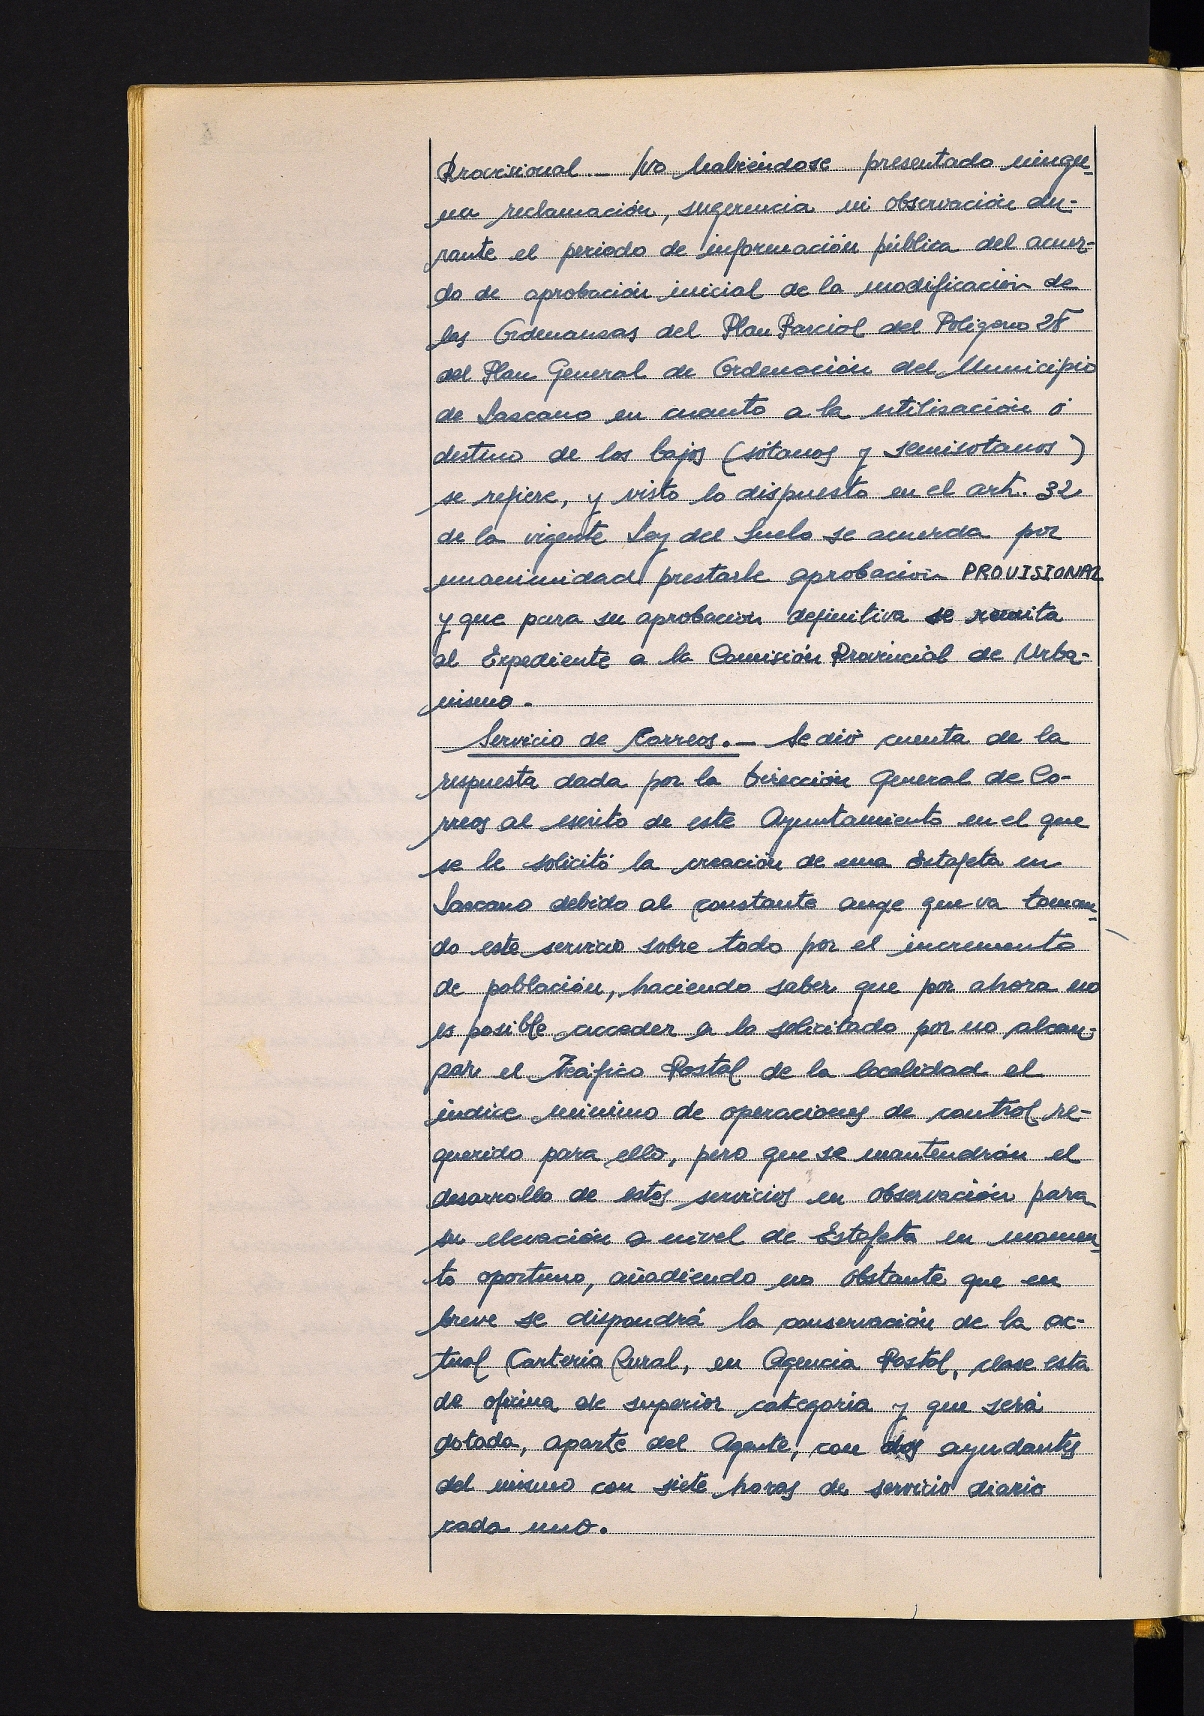 Provisional.— No habiéndose presentado ningu-
na reclamación, sugerencia ni observación du-
rante el periodo de información pública del acuer-
do de aprobación inicial de la modificación de
las Ordenanzas del Plan Parcial del Polígono 28
del Plan General de Ordenación del Municipio
de Lazcano en cuanto a la utilización ó
destino de los bajos (sótanos y semisotanos)
se refiere, y visto lo dispuesto en el art. 32
de la vigente Ley del Suelo se acuerda por
unanimidad prestarle aprobación PROVISIONAL
y que para su aprobación definitiva se remita
al Expediente a la Comisión Provincial de Urba-
nismo.
Servicio de Correos.— Se dió cuenta de la
respuesta dada por la Dirección General de Co-
rreos al escrito de este Ayuntamiento en el que
se le solicitó la creación de una Estafeta en
Lazcano debido al constante auge que va toman-
do este servicio sobre todo por el incremento
de población, haciendo saber que por ahora no
es posible acceder a lo solicitado por no alcan-
zar el Tráfico Postal de la localidad el
índice mínimo de operaciones de control re-
querido para ello, pero que se mantendrán el
desarrollo de estos servicios en observación para
su elevación a nivel de Estafeta en momen-
to oportuno, añadiendo no obstante que en
breve se dispondrá la conservación de la ac-
tual Cartería Rural, en Agencia Postal, clase esta
de oficina de superior categoría y que será
dotada, aparte del Agente, con dos ayudantes
del mismo con siete horas de servicio diario
cada uno.